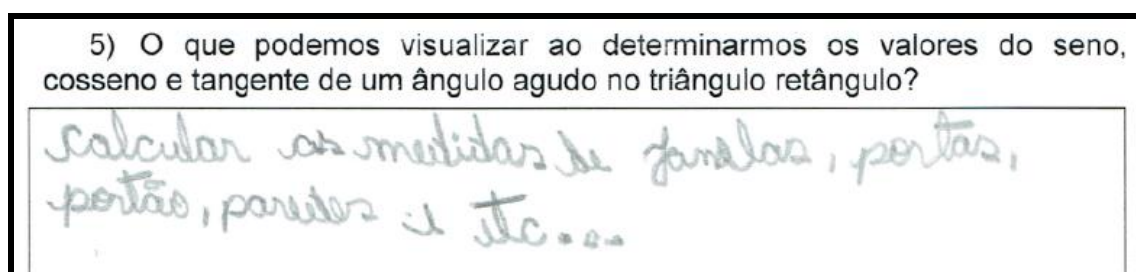 5) O que podemos visualizar ao determinarmos os valores do seno,
cosseno e tangente de um ângulo agudo no triângulo retângulo?
calcular as medidas de janelas, portas,
portão, paredes e etc...